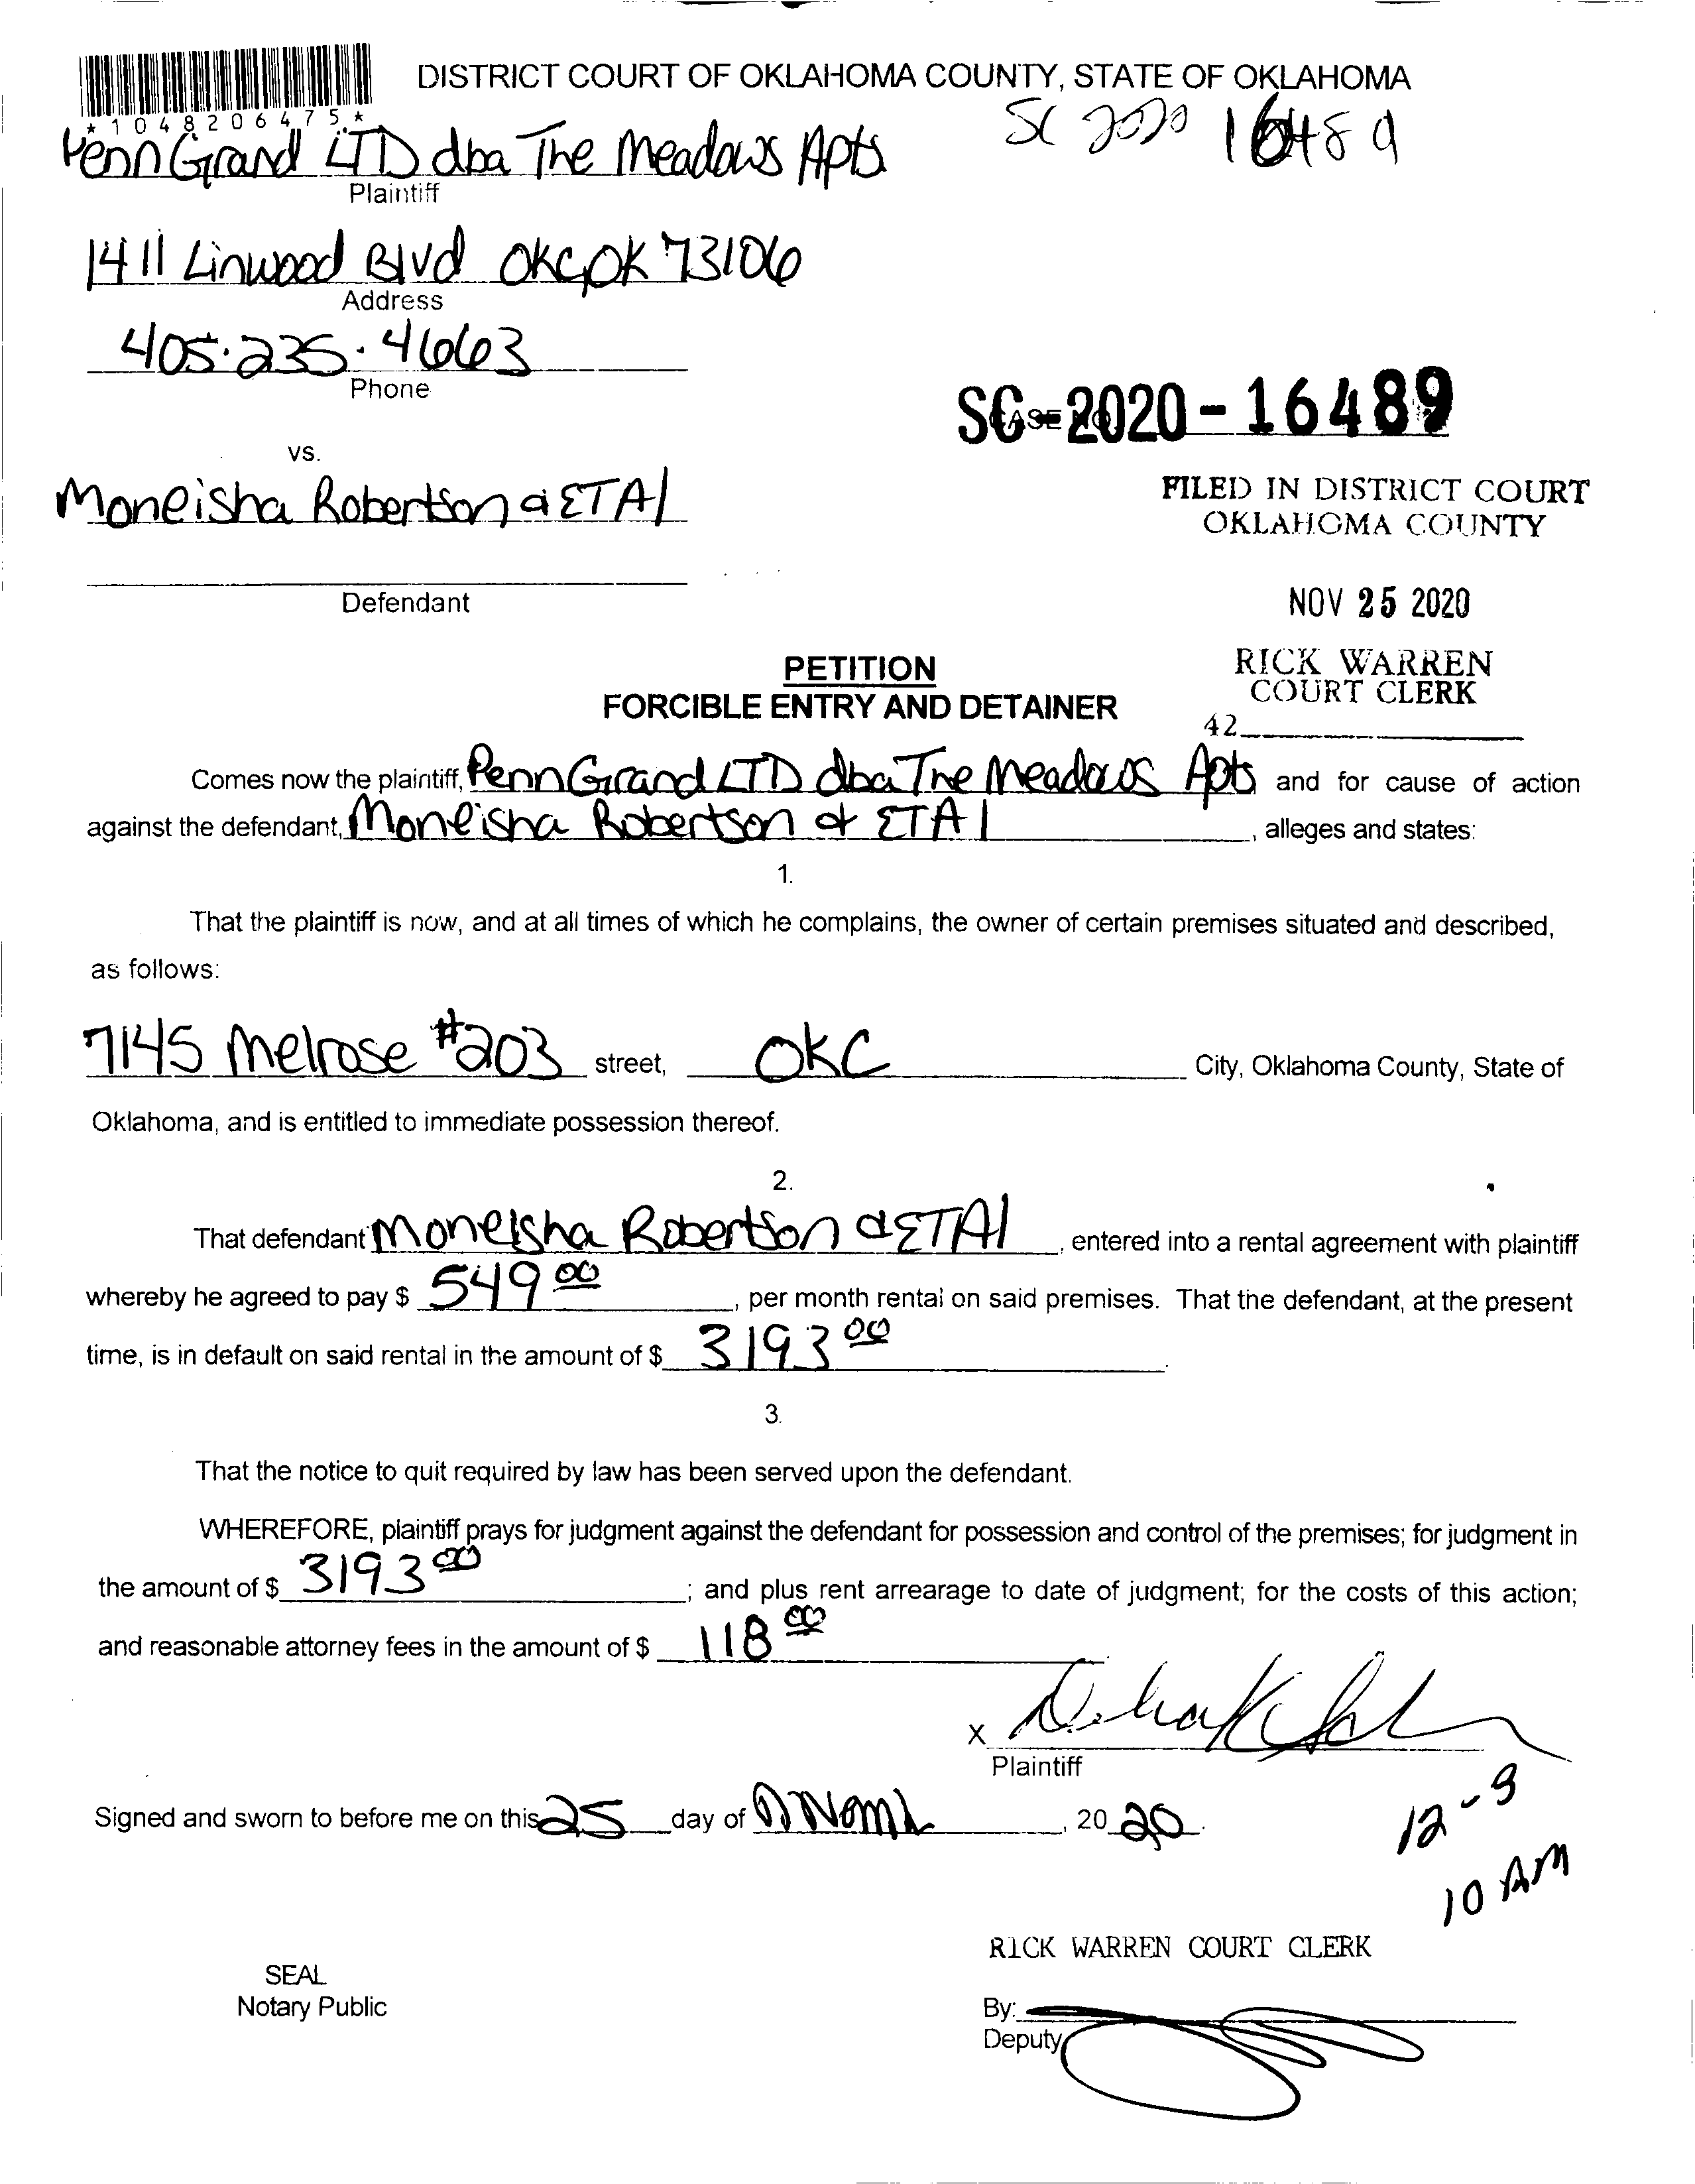 DISTRICT COURT OF OKLAHOMA COUNTY, STATE OF OKLAHOMA
* 1 0 4 8 2 0 6 4 7 5 *
SC 2020 16489
Penn Grand LTD dba The Meadows Apts
Plaintiff
1411 Linwood Blvd OKC, OK 73106
Address
405.235.4663
Phone
CASE NO.
SC-2020-16489
vs.
Moneisha Robertson & ETAl
Defendant
FILED IN DISTRICT COURT
OKLAHOMA COUNTY
NOV 25 2020
RICK WARREN
COURT CLERK
42
PETITION
FORCIBLE ENTRY AND DETAINER
Comes now the plaintiff, Penn Grand LTD dba The Meadows Apts and for cause of action
against the defendant, Moneisha Robertson & ETAl, alleges and states:
1.
That the plaintiff is now, and at all times of which he complains, the owner of certain premises situated and described,
as follows:
7145 Melrose #203 street, OKC City, Oklahoma County, State of
Oklahoma, and is entitled to immediate possession thereof.
2.
That defendant Moneisha Robertson & ETAl, entered into a rental agreement with plaintiff
whereby he agreed to pay $ 549 00, per month rental on said premises. That the defendant, at the present
time, is in default on said rental in the amount of $ 3193 00.
3.
That the notice to quit required by law has been served upon the defendant.
WHEREFORE, plaintiff prays for judgment against the defendant for possession and control of the premises; for judgment in
the amount of $ 3193 00; and plus rent arrearage to date of judgment; for the costs of this action;
and reasonable attorney fees in the amount of $ 118 00
X
Plaintiff
Signed and sworn to before me on this 25 day of, 20 20.
12-9
10 AM
RICK WARREN COURT CLERK
SEAL
Notary Public
By:
Deputy